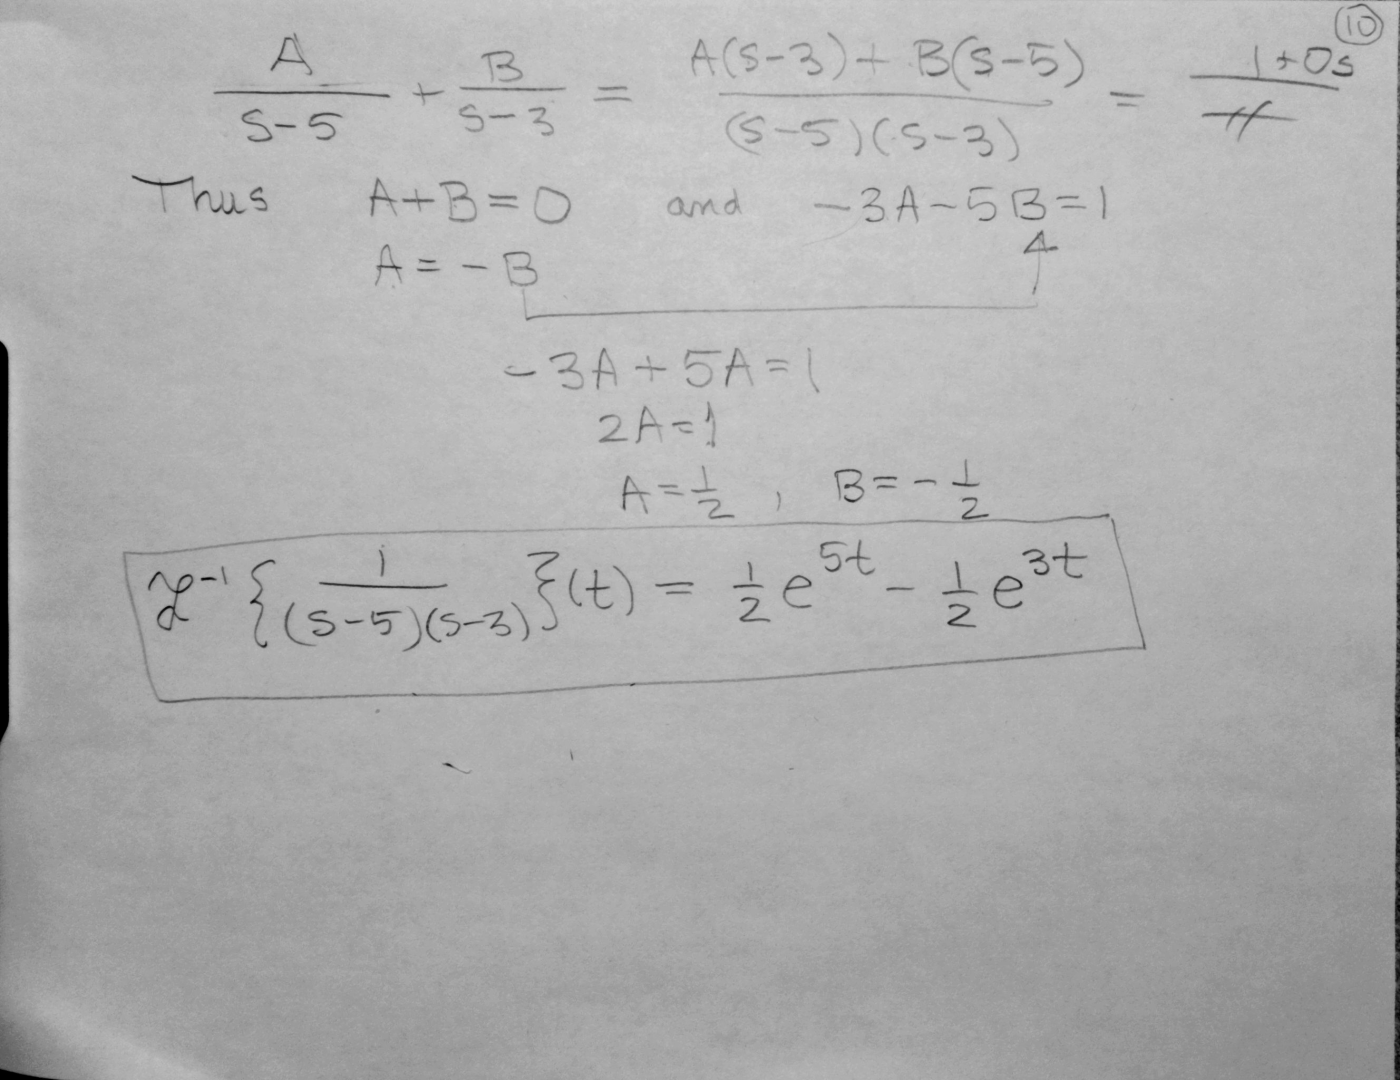 10
A/(s-5) + B/(s-3) = (A(s-3) + B(s-5))/((s-5)(s-3)) = (1+0s)/〃
Thus A+B=0 and -3A-5B=1
A = -B
-3A+5A=1
2A=1
A=1/2 , B=-1/2
ℒ⁻¹{1/((s-5)(s-3))}(t) = 1/2 e^{5t} - 1/2 e^{3t}